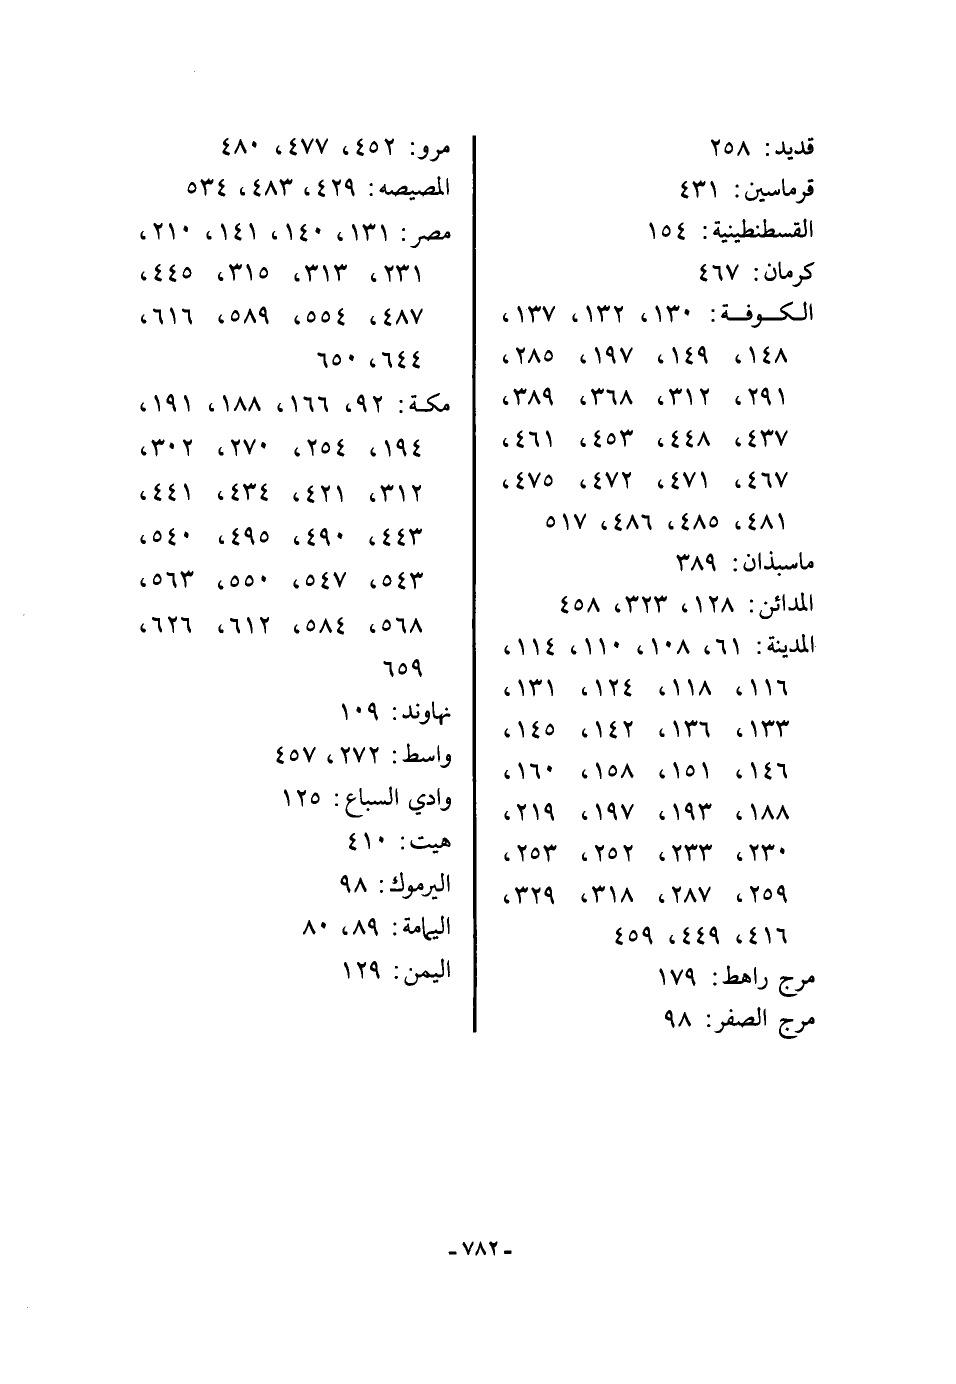 قديد: ٢٥٨
قرماسين: ٤٣١
القسطنطينية: ١٥٤
كرمان: ٤٦٧
الكوفة: ١٣٠، ١٣٢، ١٣٧،
١٤٨، ١٤٩، ١٩٧، ٢٨٥،
٢٩١، ٣١٢، ٣٦٨، ٣٨٩،
٤٣٧، ٤٤٨، ٤٥٣، ٤٦١،
٤٦٧، ٤٧١، ٤٧٢، ٤٧٥،
٤٨١، ٤٨٥، ٤٨٦، ٥١٧
ماسبذان: ٣٨٩
المدائن: ١٢٨، ٣٢٣، ٤٥٨
المدينة: ٦١، ١٠٨، ١١٠، ١١٤،
١١٦، ١١٨، ١٢٤، ١٣١،
١٣٣، ١٣٦، ١٤٢، ١٤٥،
١٤٦، ١٥١، ١٥٨، ١٦٠،
١٨٨، ١٩٣، ١٩٧، ٢١٩،
٢٣٠، ٢٣٣، ٢٥٢، ٢٥٣،
٢٥٩، ٢٨٧، ٣١٨، ٣٢٩،
٤١٦، ٤٤٩، ٤٥٩
مرج راهط: ١٧٩
مرج الصفر: ٩٨
مرو: ٤٥٢، ٤٧٧، ٤٨٠
المصيصه: ٤٢٩، ٤٨٣، ٥٣٤
مصر: ١٣١، ١٤٠، ١٤١، ٢١٠،
٢٣١، ٣١٣، ٣١٥، ٤٤٥،
٤٨٧، ٥٥٤، ٥٨٩، ٦١٦،
٦٤٤، ٦٥٠
مكة: ٩٢، ١٦٦، ١٨٨، ١٩١،
١٩٤، ٢٥٤، ٢٧٠، ٣٠٢،
٣١٢، ٤٢١، ٤٣٤، ٤٤١،
٤٤٣، ٤٩٠، ٤٩٥، ٥٤٠،
٥٤٣، ٥٤٧، ٥٥٠، ٥٦٣،
٥٦٨، ٥٨٤، ٦١٢، ٦٢٦،
٦٥٩
نهاوند: ١٠٩
واسط: ٢٧٢، ٤٥٧
وادي السباع: ١٢٥
هيت: ٤١٠
اليرموك: ٩٨
اليمامة: ٨٩، ٨٠
اليمن: ١٢٩
- ٧٨٢ -